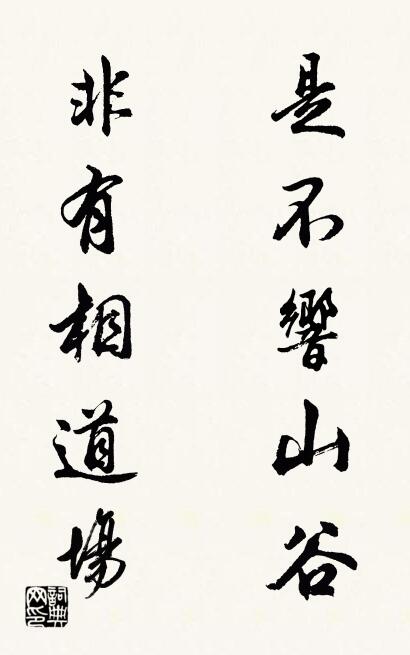 是不響山谷
非有相道場
詞典網印